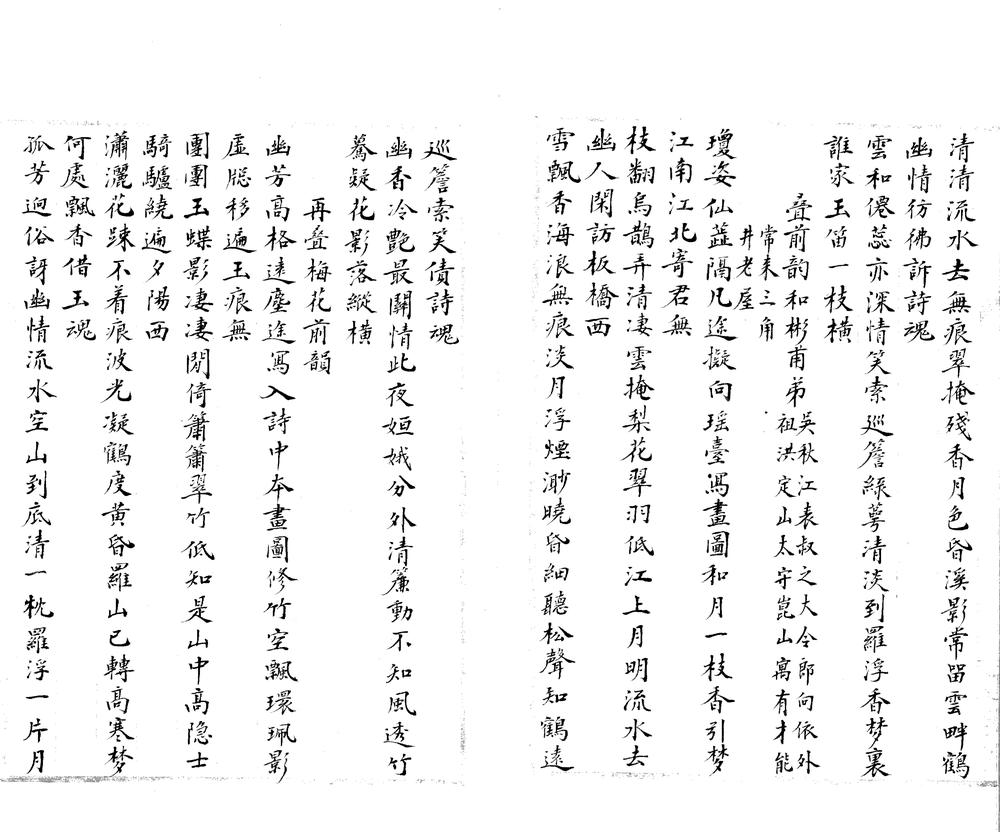 清清流水去無痕翠掩殘香月色昏溪影常留雲畔鶴
幽情彷彿訴詩魂
雲和僊蕊亦深情笑索巡簷綠萼清淡到羅浮香梦裏
誰家玉笛一枝橫
叠前韵和彬甫弟吳秋江表叔之大令郎向依外
祖洪定山太守崑山寓有才能
常来三角
井老屋
瓊姿仙蕋隔凡途擬向瑶臺寫畫圖和月一枝香引梦
江南江北寄君無
枝翻烏鵲弄清凄雲掩梨花翠羽低江上月明流水去
幽人閑訪板橋西
雪飄香海浪無痕淡月浮煙渺曉昏細聽松聲知鶴遠
巡簷索笑債詩魂
幽香冷艷最關情此夜姮娥分外清簾動不知風透竹
驀疑花影落縱橫
再叠梅花前韻
幽芳高格遠塵途寫入詩中本畫圖修竹空飄環珮影
虛牎移遍玉痕無
團團玉蝶影凄凄閒倚簫簫翠竹低知是山中高隐士
騎驢繞遍夕陽西
瀟灑花踈不着痕波光凝鶴度黄昏羅山已轉高寒梦
何處飄香借玉魂
孤芳迥俗訝幽情流水空山到底清一枕羅浮一片月